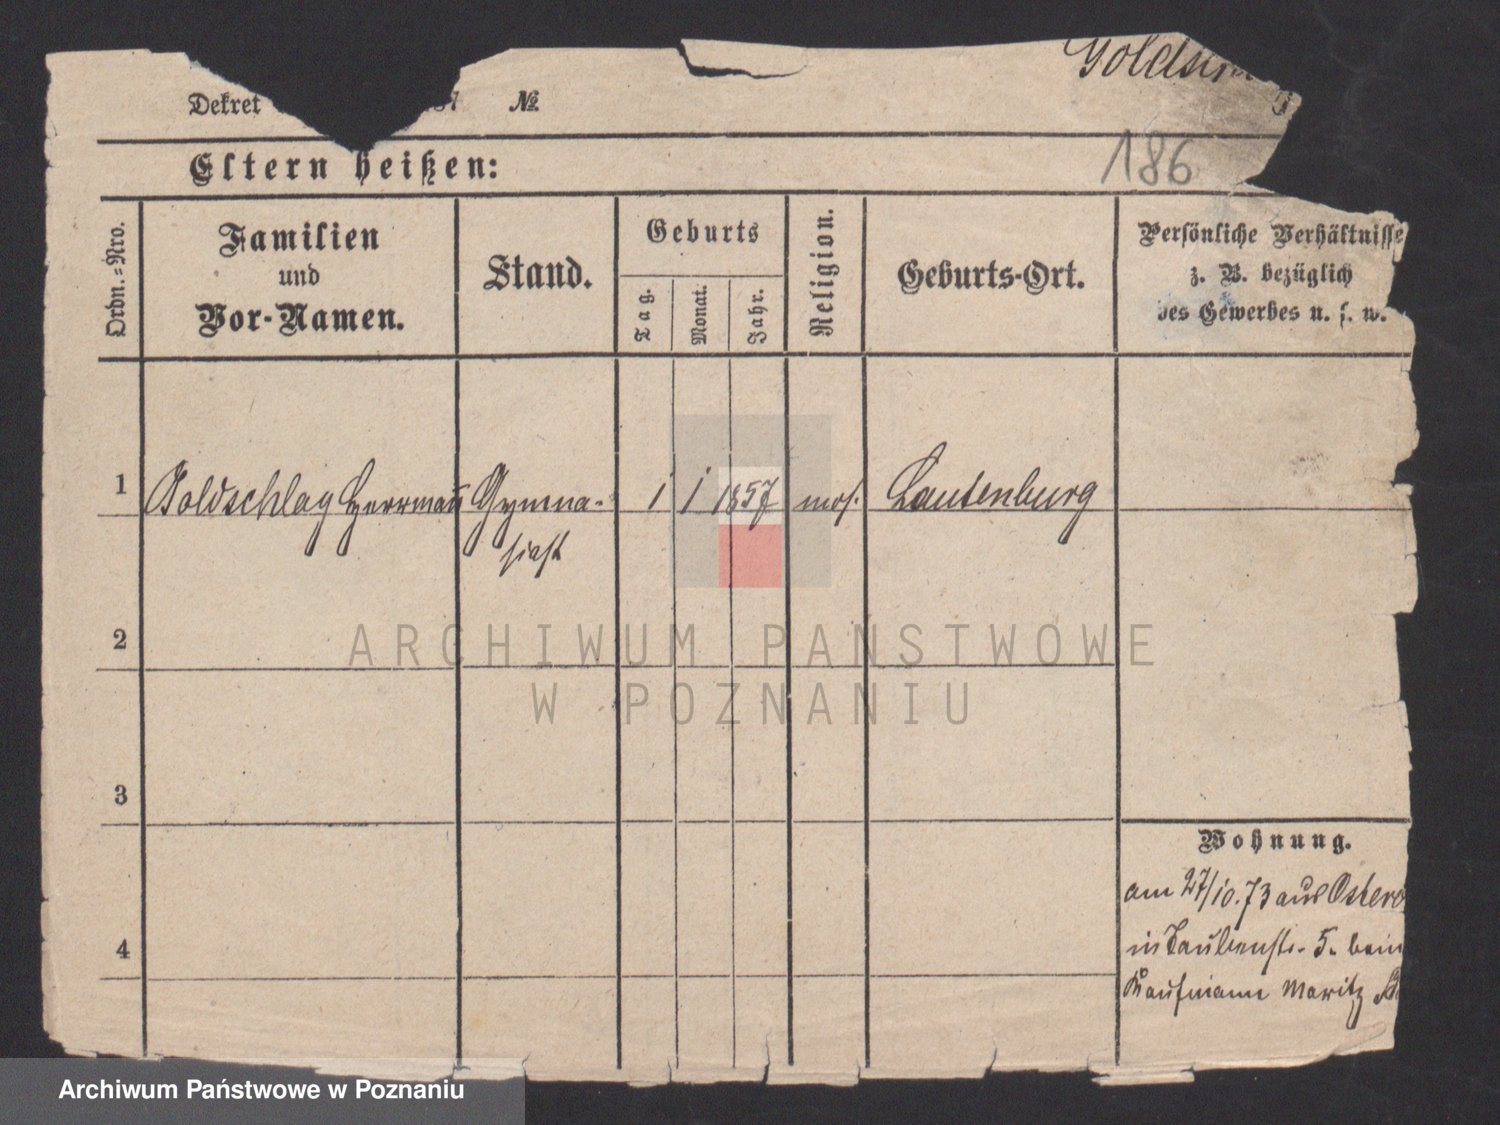 Goldsch
Dekret 187 №
186
Eltern heißen:
Ordn.=Nro.
Familien
und
Vor-Namen.
Stand.
Geburts
Tag.
Monat.
Jahr.
Religion.
Geburts-Ort.
Persönliche Verhältnisse
z. B. bezüglich
des Gewerbes u. s. w.
1 Goldschlag Herrmann Gymna- 1 1 1857 mos. Lautenburg
siast
2
ARCHIWUM PAŃSTWOWE
W POZNANIU
3
Wohnung.
am 27/10.73 aus Ostero
4
in Taubenstr. 5. beim
Kaufmann Moritz
Archiwum Państwowe w Poznaniu